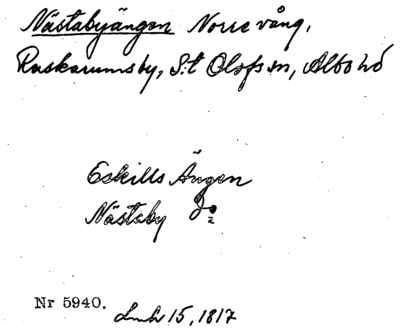 Nästabyängen Norre vång,
Raskarumsby, S:t Olofs sn, Albo hd
Eskills Ängen
Nästaby Do
Nr 5940. Lmk 15, 1817